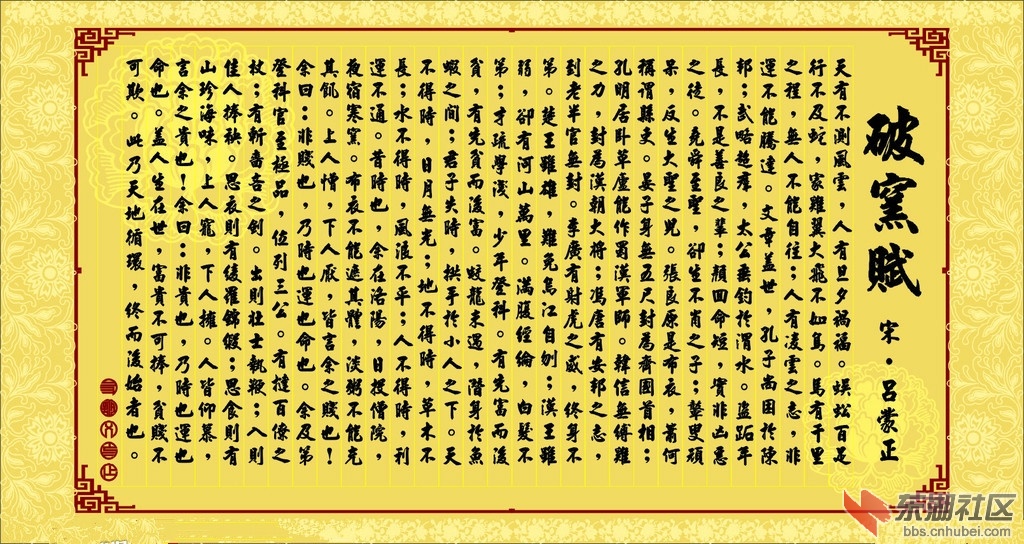 破窯賦
宋·呂蒙正
天有不測風雲，人有旦夕禍福。蜈蚣百足
行不及蛇，家雞翼大飛不如鳥。馬有千里
之程，無人不能自往；人有凌雲之志，非
運不能騰達。文章蓋世，孔子尚困於陳
邦；武略超羣，太公垂釣於渭水。盜跖年
長，不是善良之輩；顏回命短，實非凶惡
之徒。堯舜至聖，卻生不肖之子；瞽叟頑
呆，反生大聖之兒。張良原是布衣，蕭何
稱謂縣吏。晏子身無五尺封為齊國首相；
孔明居卧草廬能作蜀漢軍師。韓信無縛雞
之力，封為漢朝大將；馮唐有安邦之志，
到老半官無封。李廣有射虎之威，終身不
第。楚王雖雄，難免烏江自刎；漢王雖
弱，卻有河山萬里。滿腹經綸，白髮不
第；才疏學淺，少年登科。有先富而後
貧，有先貧而後富。蛟龍未遇，潛身於魚
蝦之間；君子失時，拱手於小人之下。天
不得時，日月無光；地不得時，草木不
長；水不得時，風浪不平；人不得時，利
運不通。昔時也，余在洛陽，日投僧院，
夜宿寒窯。布衣不能遮其體，淡粥不能充
其飢。上人憎，下人厭，皆言余之賤也！
余曰：非賤也，乃時也運也命也。余及第
登科官至極品，位列三公。有撻百僚之
杖；有斬嗇吝之劍。出則壯士執鞭；入則
佳人捧秧。思衣則有綾羅錦緞；思食則有
山珍海味，上人寵，下人擁。人皆仰慕，
言余之貴也！余曰：非貴也，乃時也運也
命也。蓋人生在世，富貴不可捧，貧賤不
可欺。此乃天地循環，終而復始者也。
东湖社区
bbs.cnhubei.com